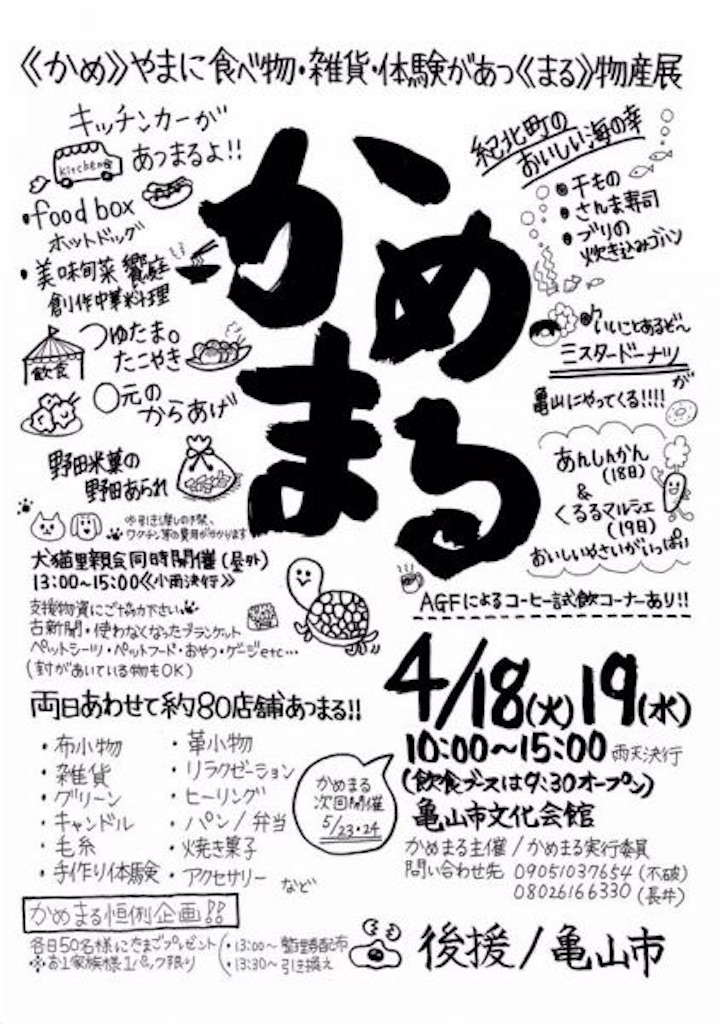 《かめ》やまに食べ物・雑貨・体験があつ《まる》物産展
キッチンカーが
あつまるよ!!
kitchen
・food box
ホットドッグ
・美味旬菜 饗庭
創作中華料理
飲食
つゆたま。
たこやき
〇元の
からあげ
野田米菓の
野田あられ
かめ
まる
紀北町の
おいしい海の幸
・干もの
・さんま寿司
・ブリの
炊き込みゴハン
いいことあるぞ〜
ミスタードーナツ
が
亀山にやってくる!!!!
あんしんかん
(18日)
&
くるるマルシェ
(19日)
おいしいやさいがいっぱい
AGFによるコーヒー試飲コーナーあり!!
※引き渡しの際、
ワクチン等の費用がかかります
犬猫里親会同時開催(屋外)
13:00〜15:00《小雨決行》
支援物資にご協力下さい
古新聞・使わなくなったブランケット
ペットシーツ・ペットフード・おやつ・ゲージetc…
(封があいている物もOK)
両日あわせて約80店舗あつまる!!
・布小物
・雑貨
・グリーン
・キャンドル
・毛糸
・手作り体験
・革小物
・リラクゼーション
・ヒーリング
・パン/弁当
・焼き菓子
・アクセサリー など
かめまる
次回開催
5/23・24
4/18(火)19(水)
10:00〜15:00 雨天決行
(飲食ブースは9:30オープン)
亀山市文化会館
かめまる主催/かめまる実行委員
問い合わせ先 09051037654(不破)
08026166330(長井)
かめまる恒例企画!!
各日50名様にたまごプレゼント
※お1家族様1パック限り
・13:00〜 整理券配布
・13:30〜 引き換え
後援/亀山市